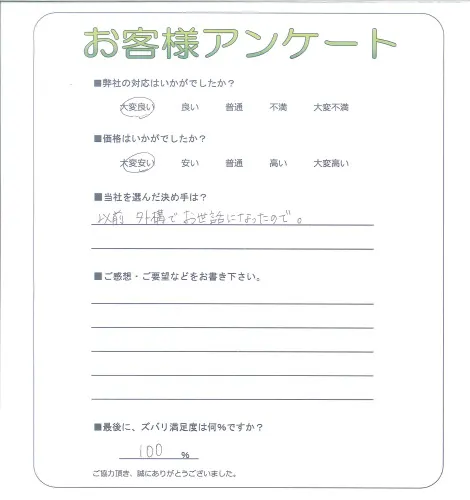 お客様アンケート
■弊社の対応はいかがでしたか？
大変良い 良い 普通 不満 大変不満
■価格はいかがでしたか？
大変安い 安い 普通 高い 大変高い
■当社を選んだ決め手は？
以前 外構で お世話になったので。
■ご感想・ご要望などをお書き下さい。
■最後に、ズバリ満足度は何%ですか？
100 %
ご協力頂き、誠にありがとうございました。